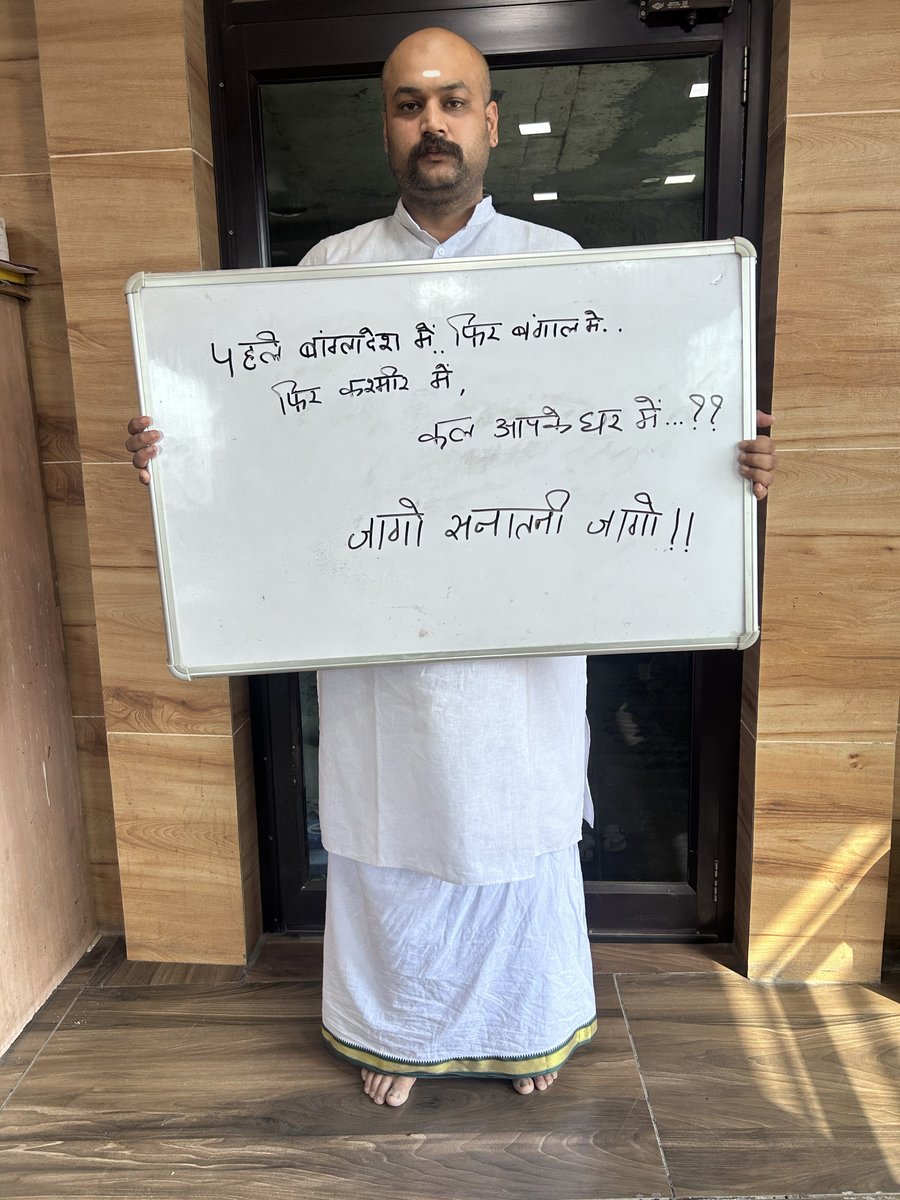 पहले बांग्लादेश में.. फिर बंगाल मे..
फिर कश्मीर में,
कल आपके घर में...??
जागो सनातनी जागो!!